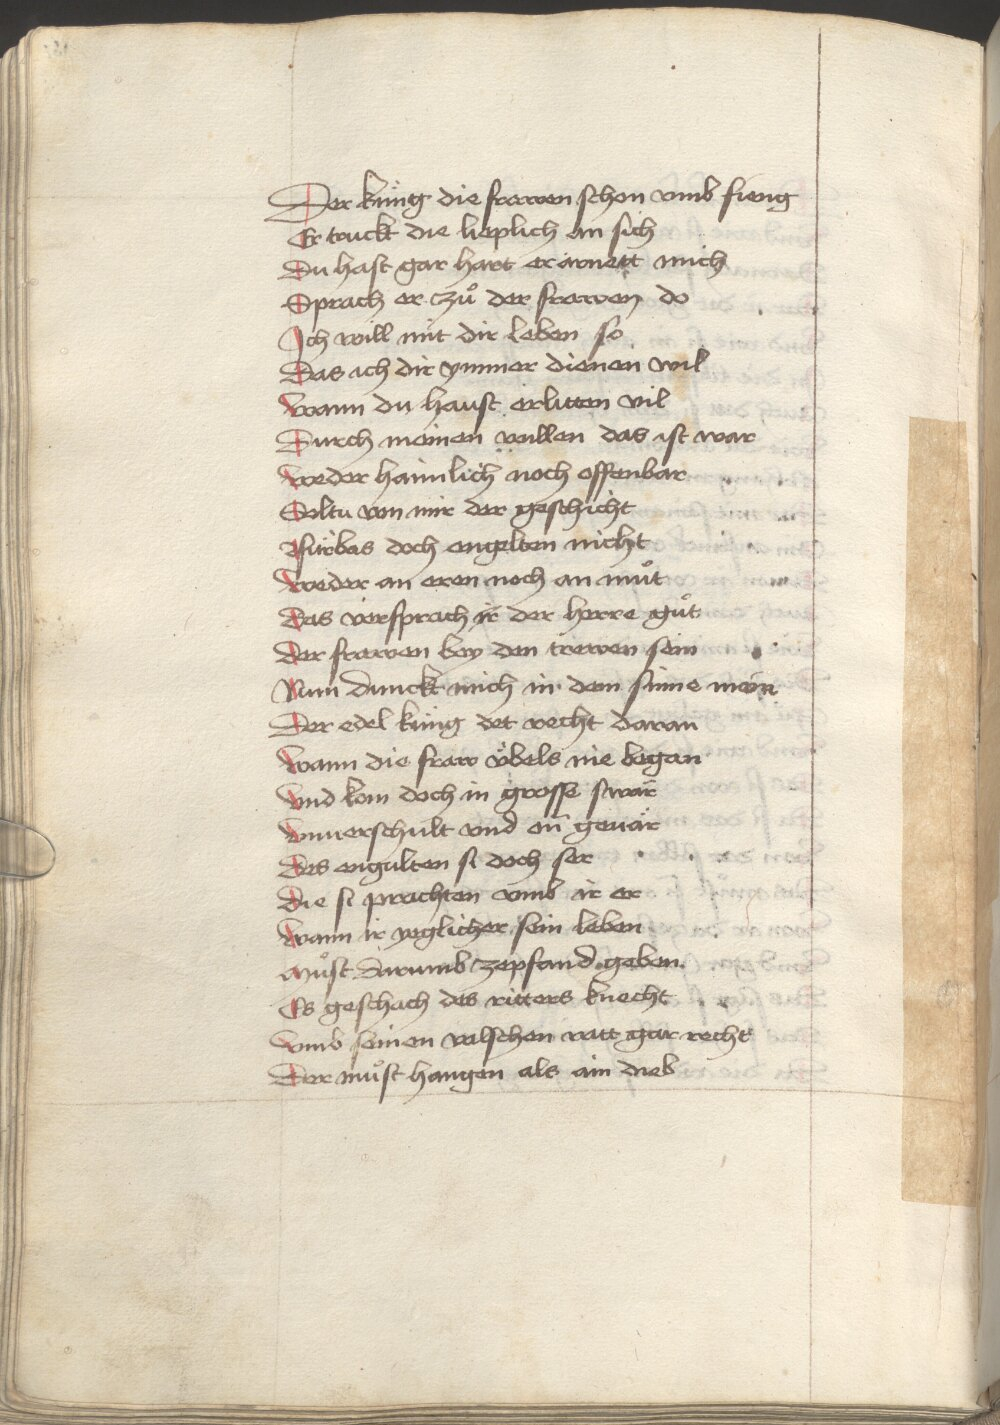 Der küng die frawen schon vmb fieng
Er truckt die lieplich an sich
Du hast gar hart erarnett mich
Sprach er zuͦ der frawen do
Ich will mit dir leben so
Das ich dir ymmer dienen wil
Wann du haust erlitten vil
Durch meinen willen das ist war
Weder haimlich noch offenbar
Soltu von mir der geschicht
Fürbas doch engelten nicht
Weder an eren noch an muͦt
Das versprach ir der herre guͦt
Der frawen bey den trewen sein
Nun dunckt mich in dem sinne mein
Der edel küng det recht daran
Wann die fraw übels nie began
Vnd kom doch in grosse swär
Vnuerschult vnd on geuär
Des engulten si doch ser
Die si prachten vmb ir er
Wann ir yeglicher sein leben
Muͦst darumb zepfand geben
Es geschach des ritters knecht
Vmb seinen valschen ratt gar recht
Der muͦst hangen als ain dieb